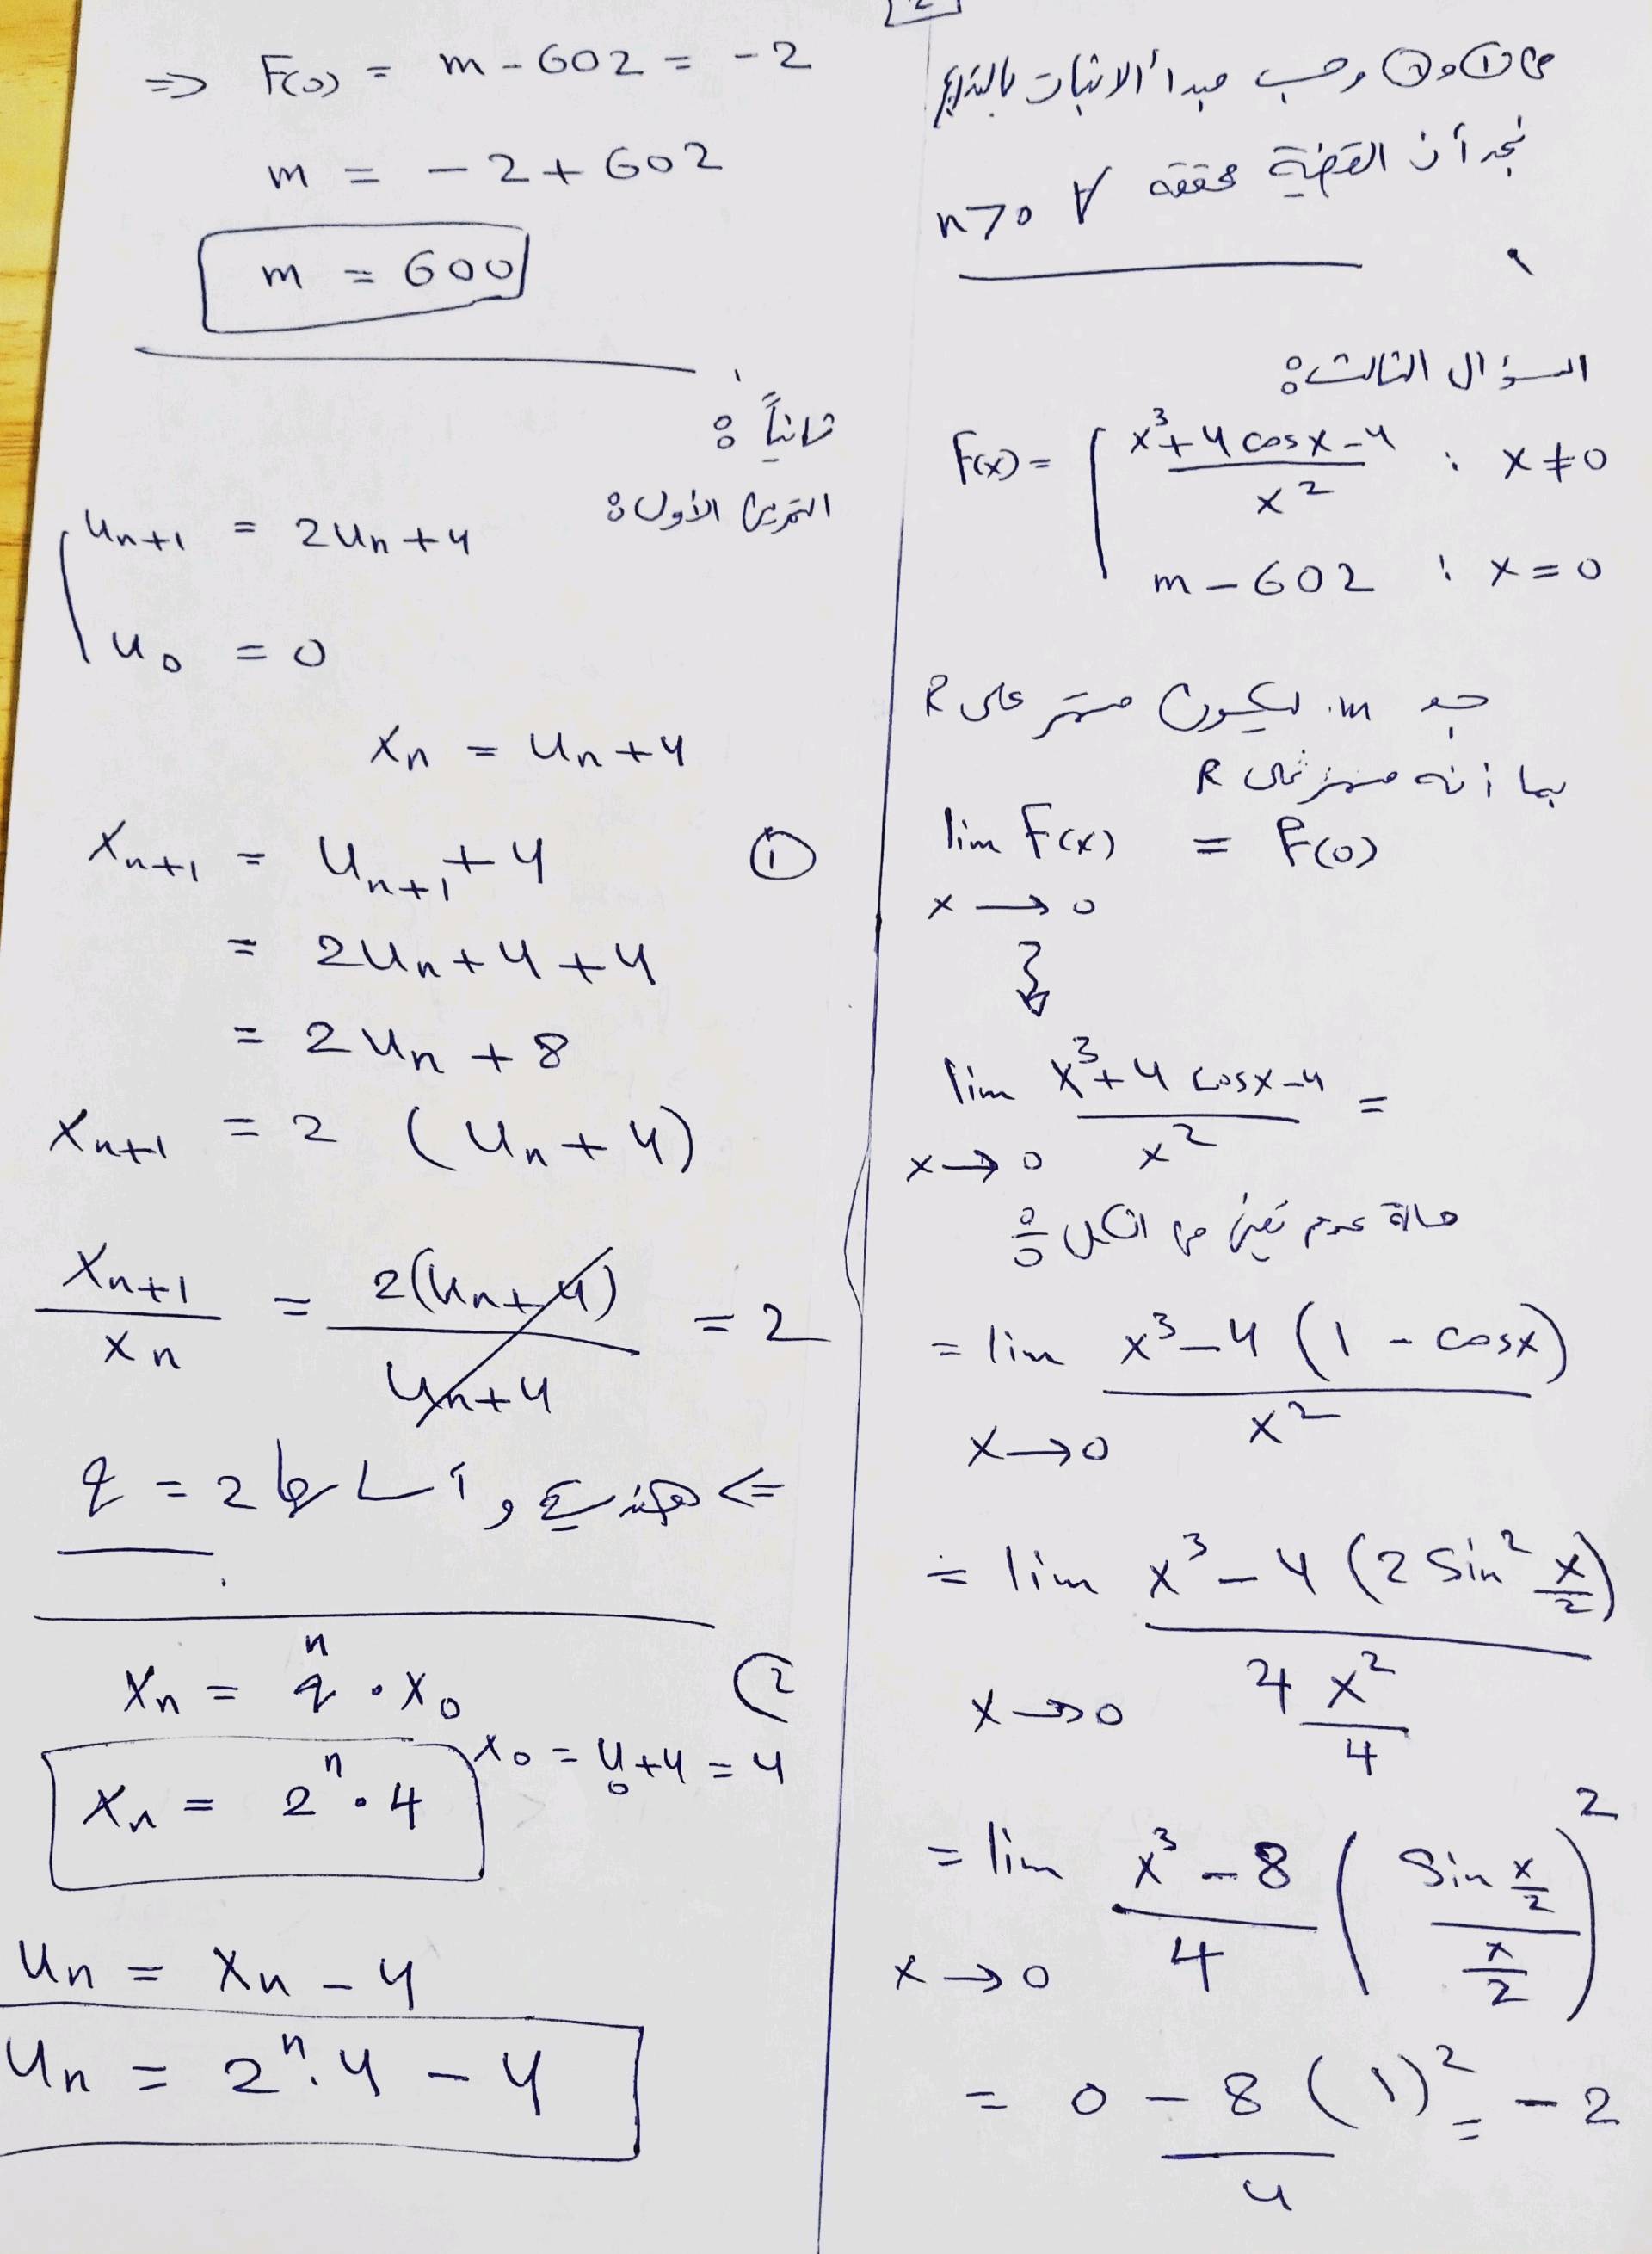 2
من ① و ② وحسب مبدأ الاثبات بالتدريج
نجد أن القضية محققة ∀ n>0
السؤال الثالث:
F(x) = { (x³+4 cosx-4)/x² : x≠0
m-602 : x=0
جد m ليكون مستمر على R
بما أنه مستمر على R
lim F(x) = F(0)
x→0
lim (x³+4 cosx-4)/x² =
x→0
حالة عدم تعيين من الشكل 0/0
= lim (x³-4(1-cosx))/x²
x→0
= lim (x³-4(2 Sin² x/2))/(4 x²/4)
x→0
= lim (x³-8)/4 ((Sin x/2)/(x/2))²
x→0
= (0-8)/4 (1)² = -2
⇒ F(0) = m-602 = -2
m = -2+602
m = 600
ثانياً:
التمرين الأول:
{ Un+1 = 2Un+4
U0 = 0
Xn = Un+4
① Xn+1 = Un+1+4
= 2Un+4+4
= 2Un+8
Xn+1 = 2 (Un+4)
Xn+1/Xn = 2(Un+4)/(Un+4) = 2
⇐ هندسية و أساسها q = 2
2) Xn = qⁿ·X0
X0 = U0+4 = 4
Xn = 2ⁿ·4
Un = Xn-4
Un = 2ⁿ.4-4